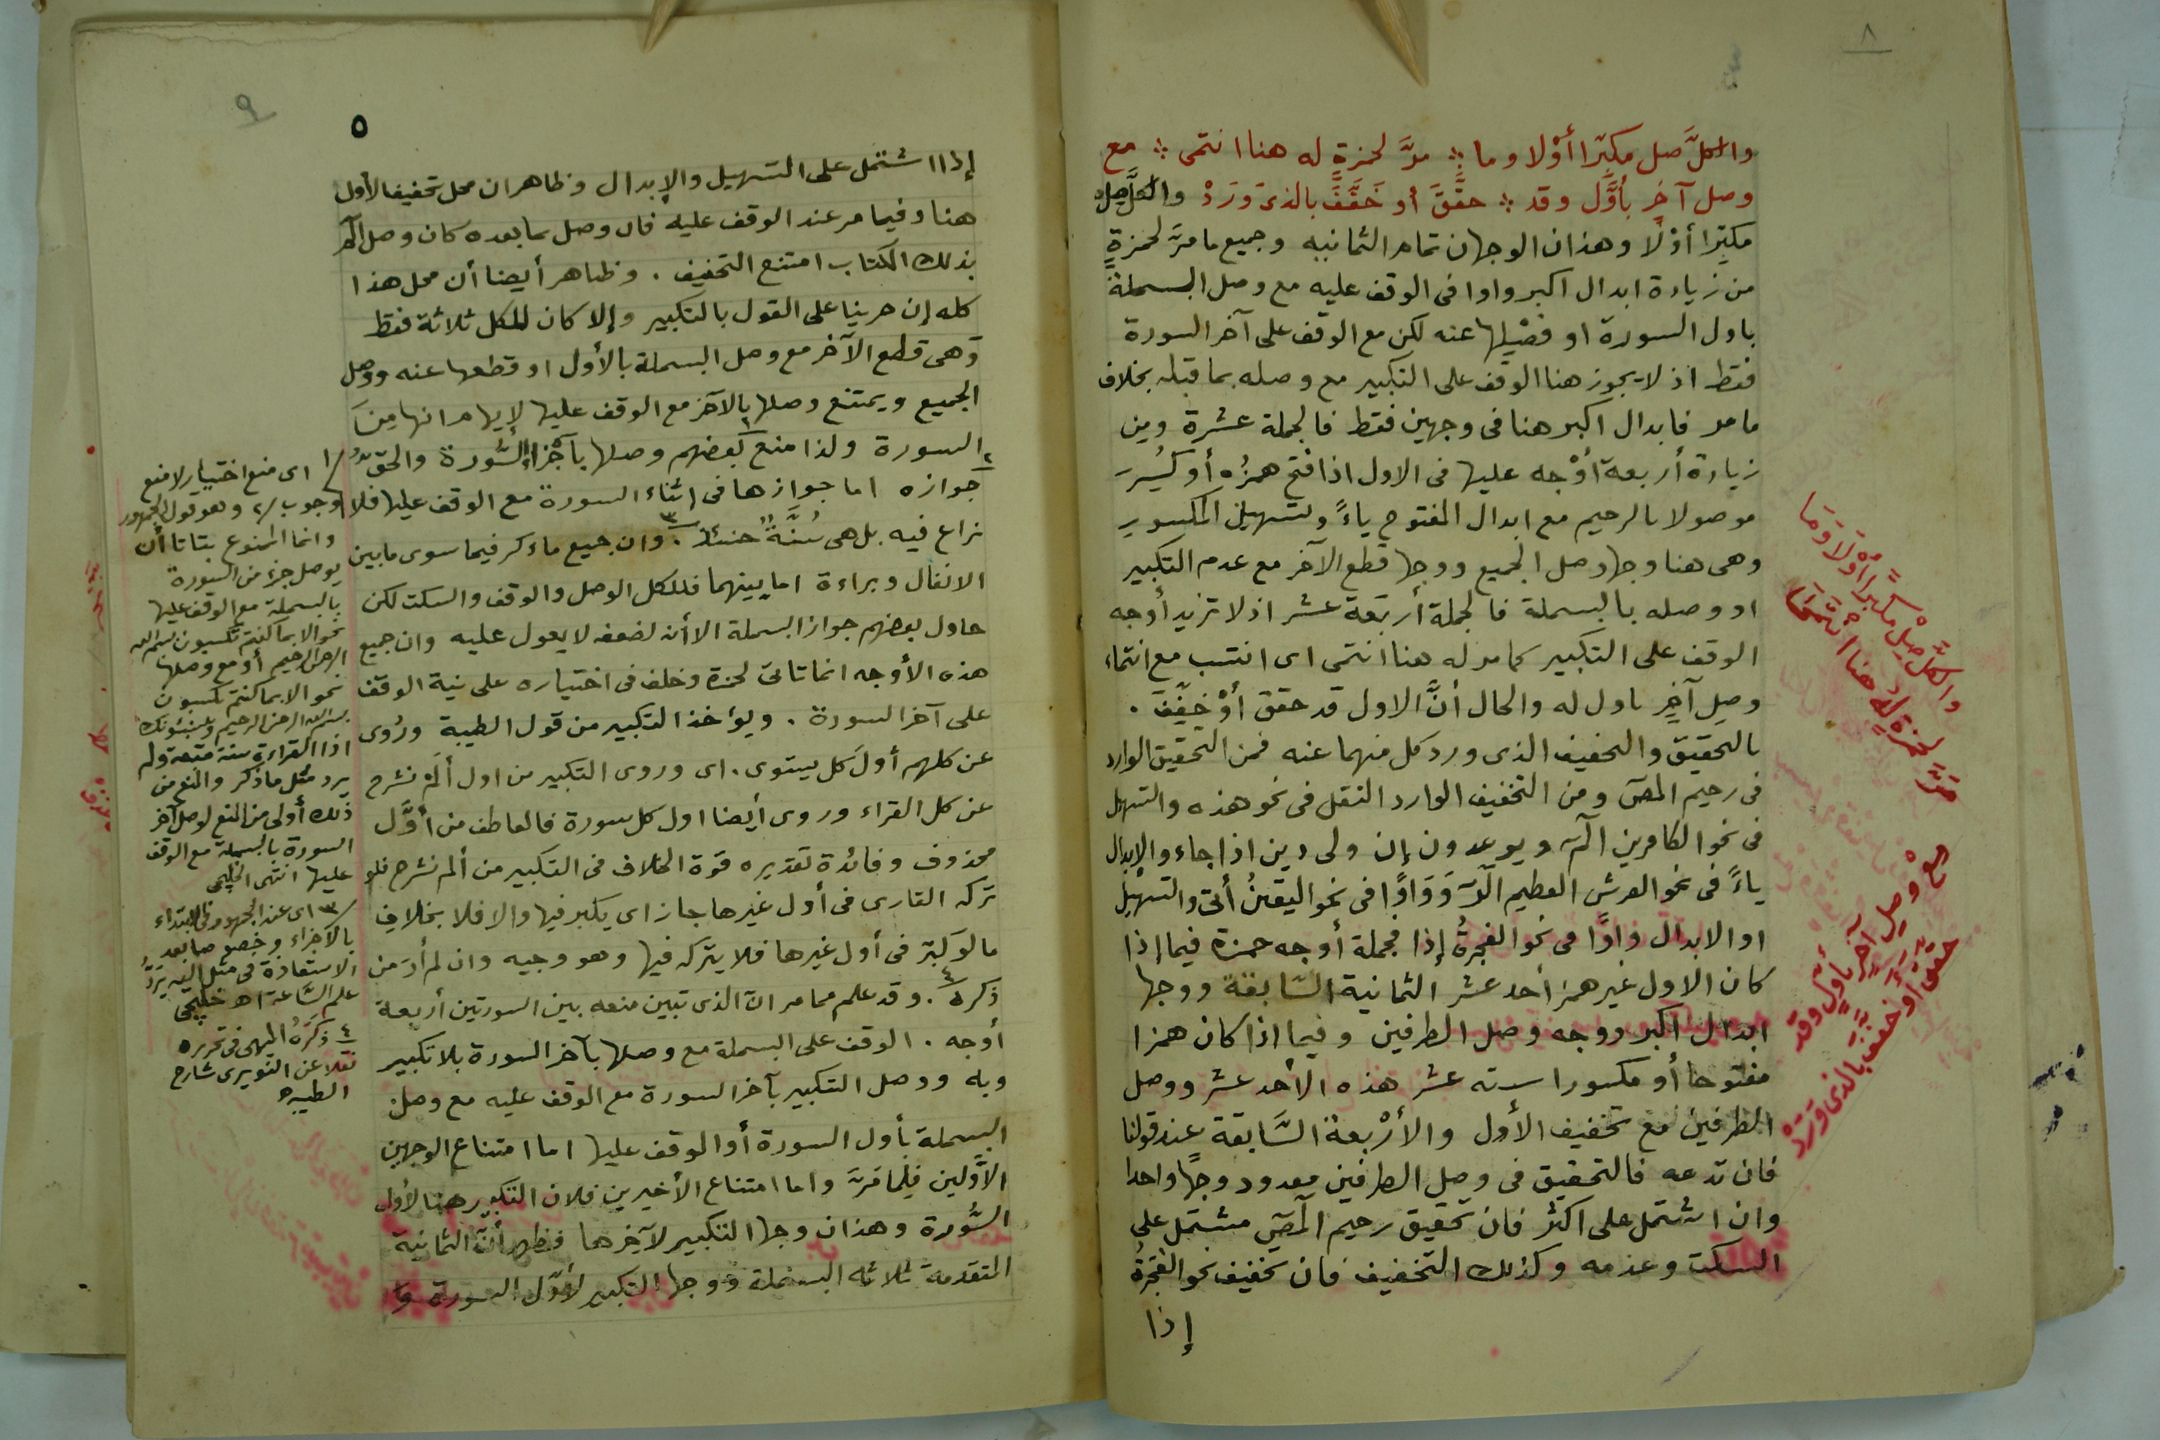 ٨
والكلَّ صل مكبّرا أوْلا وما ∴ مرَّ لحمزةٍ له هنا انتمى ∴ مع
وصل آخرٍ بأوَّل وقد ∴ حقَّقَ أو خَفَّفَ بالذى وَرَدْ والكلَّ صل
مكبّرا أوْلا وهذان الوجهان تمام الثمانيه وجميع ما مرَّ لحمزةٍ
من زيادة ابدال اكبر واوا فى الوقف عليه مع وصل البسملة
باول السورة او فصْلِها عنه لكن مع الوقف على آخر السورة
فقط اذ لا يجوز هنا الوقف على التكبير مع وصله بما قبله بخلاف
ما مر فابدال اكبر هنا فى وجهين فقط فالجملة عشرة ومن
زيادة أربعة أوْجه عليها فى الاول اذا فتح همزُه أو كُسِرَ
موصولا بالرحيم مع ابدال المفتوح ياءً وتسهيل المكسور
وهى هنا وجها وصل الجميع ووجها قطع الآخر مع عدم التكبير
او وصله بالبسملة فالجملة أربعة عشر اذ لا تزيد أوجه
الوقف على التكبير كما مر له هنا انتمى اى انتسب مع انتماء
وصلِ آخرٍ باول له والحال أنَّ الاول قد حقق أوْ خفِّفَ .
بالتحقيق والتخفيف الذى ورد كل منهما عنه فمن التحقيق الوارد
فى رحيم المص ومن التخفيف الوارد النقل فى نحو هذه والتسهيل
فى نحو الكافرين الم ويوعدون إن ولى دين اذا جاء والإبدال
ياءً فى نحو العرش العظيم الر وَوَاوًا فى نحو اليقينُ أتى والتسهيل
او الابدال واوًا فى نحو الفجرةُ إذا فجملة أوجه حمزة فيما إذا
كان الاول غير همز أحد عشر الثمانية السَّابقة ووجها
ابدال اكبر ووجه وصل الطرفين وفيما اذا كان همزا
مفتوحا أو مكسورا ستة عشر هذه الأحد عشر ووصل
الطرفين مع تخفيف الأول والأرْبعة السَّابقة عند قولنا
فان تدعه فالتحقيق فى وصل الطرفين معدود وجها واحدا
وان اشتمل على اكثر فان تحقيق رحيم المص مشتمل على
السكت وعدمه وكذلك التخفيف فان تخفيف نحو الفجرةُ
إذا
والكلَّ صِلْ مكبّرًا أوْلا وَمَا
مَرَّ لحمزةٍ لهُ هنا انْتَمَى
مَعْ وصلِ آخرٍ بأوَّلٍ وقد
حقَّقَ أو خفَّفَ بالذى وَرَدْ
٩
٥
إذا اشتمل على التسهيل والإبدال وظاهر ان محل تخفيف الأول
هنا وفيما مر عند الوقف عليه فان وصل بما بعده كان وصل الم
بذلك الكتاب امتنع التخفيف . وظاهر أيضا أن محل هذا
كله إن جرينا على القول بالتكبير وإلا كان للكل ثلاثة فقط
وهى قطع الآخر مع وصل البسملة بالأول او قطعها عنه ووصل
الجميع ويمتنع وصلها بالآخر مع الوقف عليها لإيهام انها مِنَ
السورة ولذا منع بعضهم وصلها بآجزاء السُّورة والحقُّ
جوازه اما جوازها فى اثناء السورة مع الوقف عليها فلا
نزاع فيه بل هى سُنَّةٌ حنئذ . وان جميع ما ذكر فيما سوى ما بين
الانفال وبراءة اما بينهما فللكل الوصل والوقف والسكت لكن
حاول بعضهم جواز البسملة الا أنه لضعفه لا يعول عليه وان جميع
هذه الأوجه انما تاتى لحمزة وخلف فى اختياره على نية الوقف
على آخر السورة . ويؤخذ التكبير من قول الطيبة ورُوى
عن كلهم أولَ كل يستوى . اى وروى التكبير من اول ألم نشرح
عن كل القراء وروى أيضا اول كل سورة فالعاطف من أوَّل
محذوف وفائدة تقديره قوة الخلاف فى التكبير من ألم نشرح فلو
تركه القارى فى أول غيرها جاز اى يكبر فيها والا فلا بخلاف
ما لو كبّر فى أول غيرها فلا يتركه فيها وهو وجيه وان لم أرَ من
ذكره . وقد علم مما مر انّ الذى تبين منعه بين السورتين أربعة
أوجه . الوقف على البسملة مع وصلها بآخر السورة بلا تكبير
وبه ووصل التكبير بآخر السورة مع الوقف عليه مع وصل
البسملة بأول السورة أو الوقف عليها اما امتناع الوجهين
الأوّلين فلما مَرَّ واما امتناع الأخيرين فلان التكبير هنا لأول
السُّورة وهذان وجها التكبير لآخرها فظهر أنّ الثمانية
المتقدمة ثلاثه البسملة ووجها التكبير لأوّل السورة وا
١ اى منع اختيار لا منع
وجوب ٢ وهو قول الجمهور
وانما الممنوع بتاتا أن
يوصل جزء من السورة
بالبسملة مع الوقف عليها
نحو الا بما كنتم تكسبون بسم الله
الرحمن الرحيم أو مع وصلها
نحو الا بما كنتم تكسبون
بسم الله الرحمن الرحيم ويستنبئونك
اذ القراءة سنة متبعة ولم
يرد مثل ما ذكر والمنع من
ذلك أولى من المنع لوصل آخر
السورة بالبسملة مع الوقف
عليها انتهى
٣ اى عند الجمهور فى الابتداء
بالأجزاء وخصوصا بعد
الاستعاذة فى مثل اليه يُرَدُّ
علم السَّاعة اهـ
٤ ذكرَهُ الميهى فى تحريره
نقلا عن النويرى شارح
الطيبه